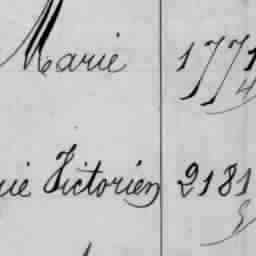 Marie 1771
4
uie Victorien 2181